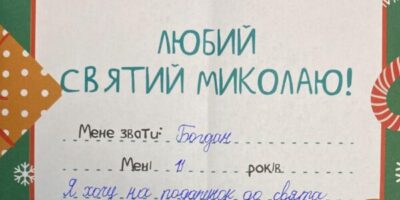 ЛЮБИЙ
СВЯТИЙ МИКОЛАЮ!
Мене звати: Богдан
Мені 11 років
Я хочу на подарунок до свята